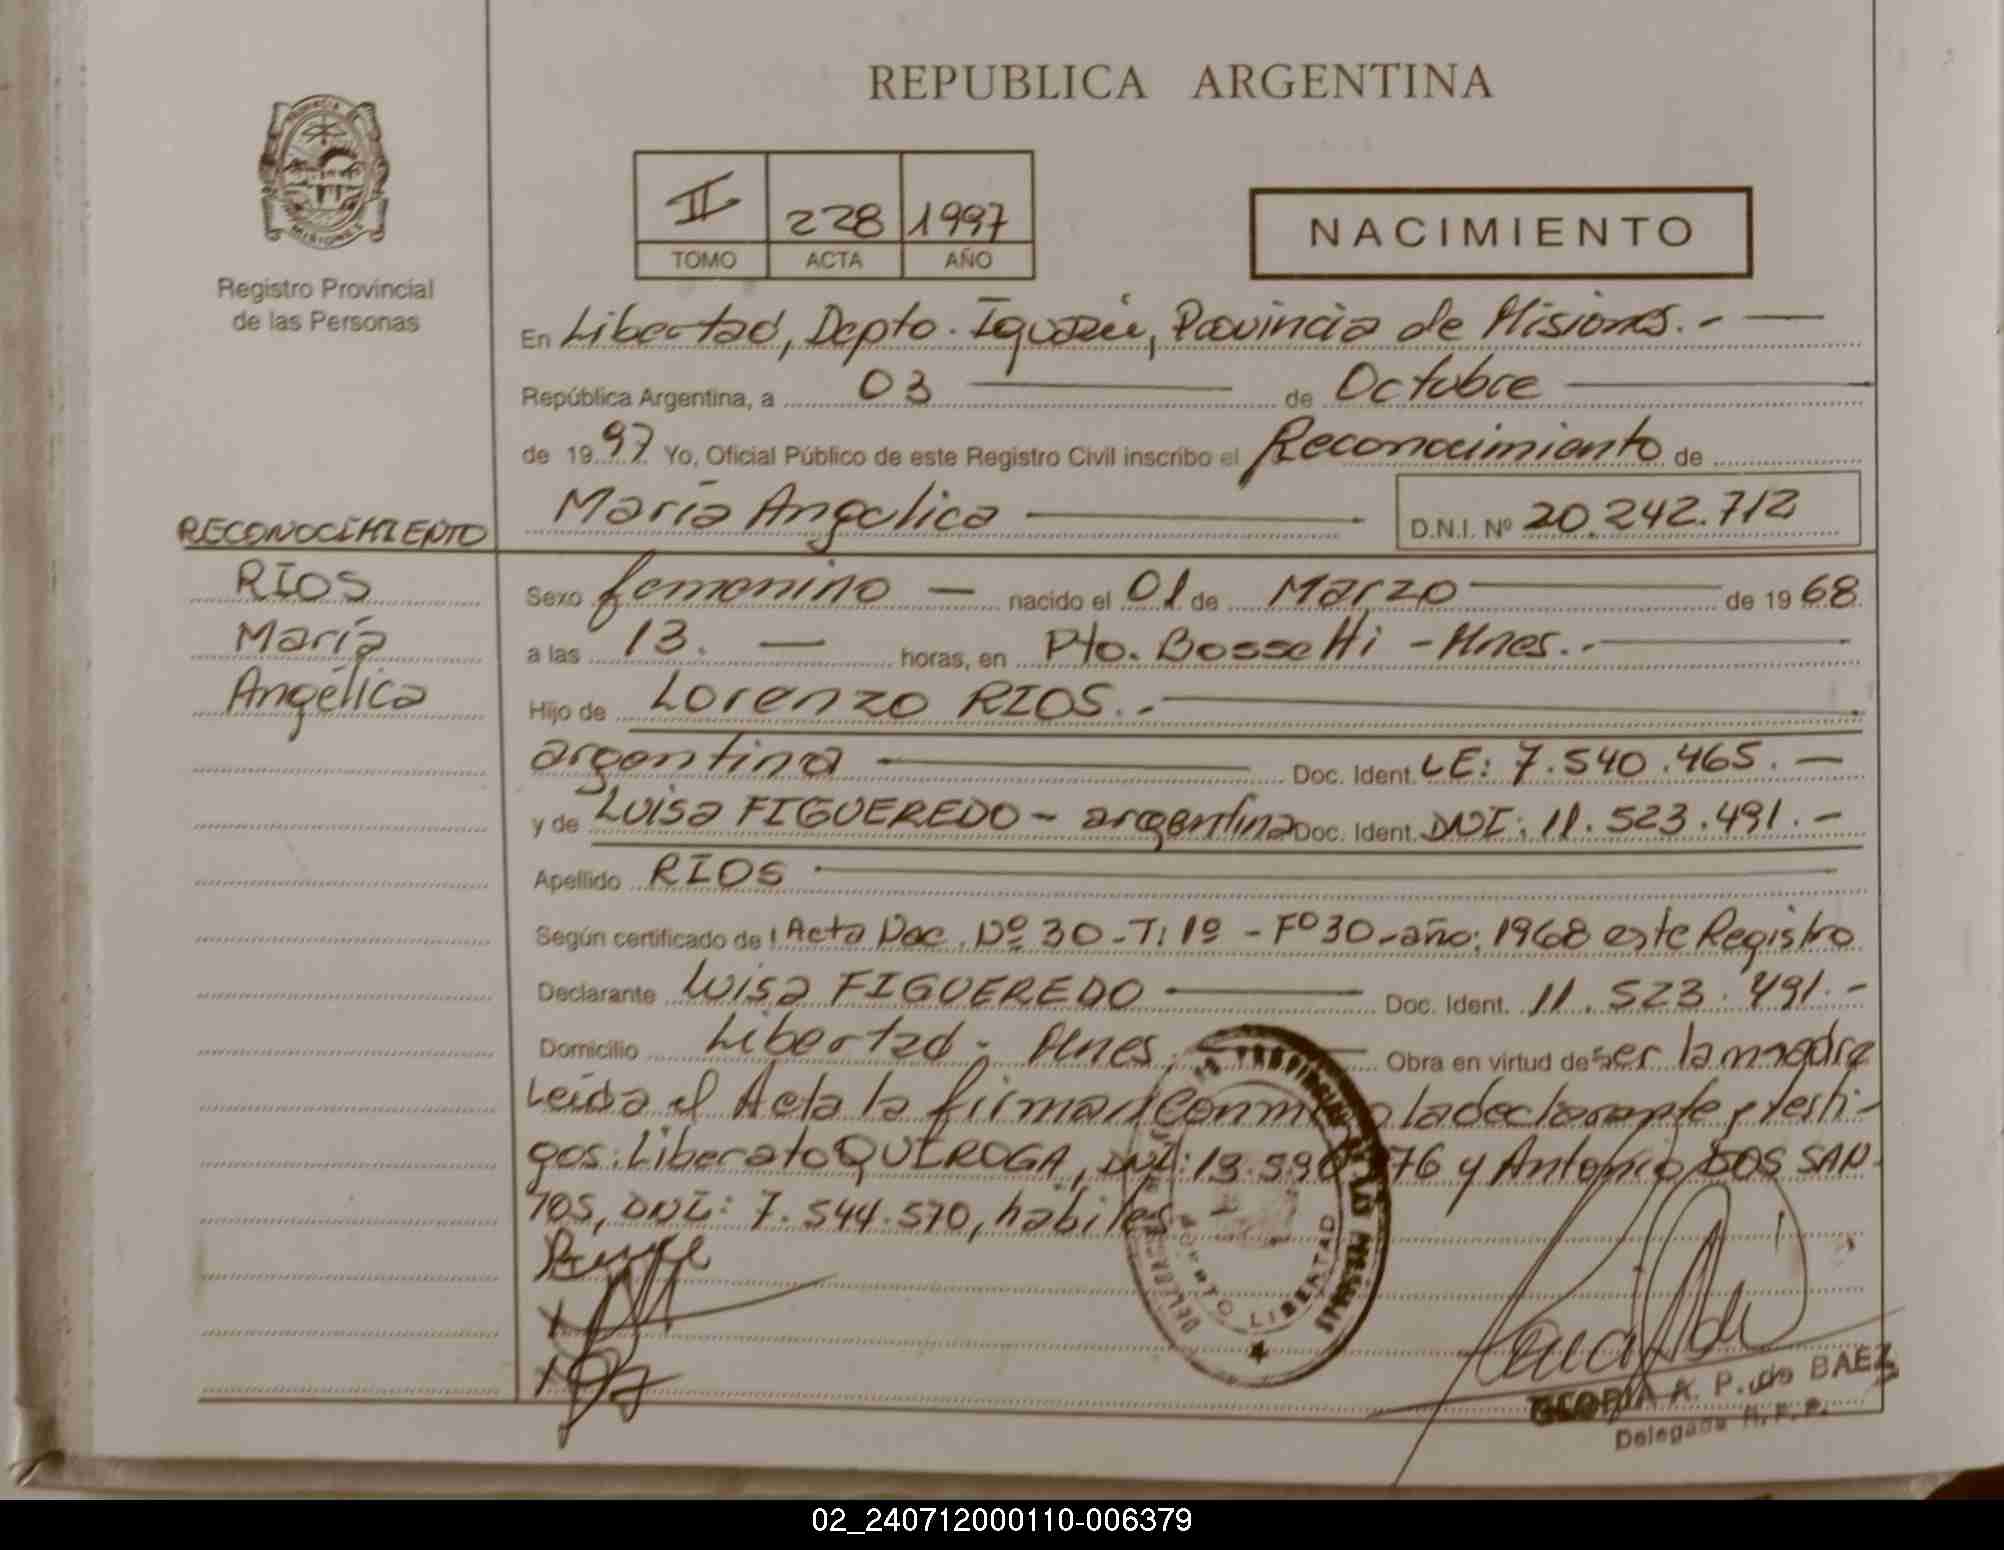 REPUBLICA ARGENTINA
PROVINCIA
MISIONES
Registro Provincial
de las Personas
II 228 1997
TOMO ACTA AÑO
NACIMIENTO
En Libertad, Depto. Iguazú, Provincia de Misiones.-
República Argentina, a 03 de Octubre
de 1997 Yo, Oficial Público de este Registro Civil inscribo el Reconocimiento de
María Angelica D.N.I. Nº 20.242.712
RECONOCIMIENTO
RIOS
María
Angélica
Sexo femenino nacido el 01 de Marzo de 1968
a las 13. horas, en Pto. Bossetti - Mnes.-
Hijo de Lorenzo RIOS.-
argentina Doc. Ident. LE: 7.540.465.-
y de Luisa FIGUEREDO - argentina Doc. Ident. DNI: 11.523.491.-
Apellido RIOS
Según certificado de Acta Doc. Nº 30 - T: 1º - Fº 30 - año: 1968 este Registro
Declarante Luisa FIGUEREDO Doc. Ident. 11.523.491.-
Domicilio Libertad - Mnes. Obra en virtud de ser la madre
Leída el Acta la firman la declarante y testi-
gos: Liberato QUIROGA, DNI: 13.590 76 y Antonio DOS SAN-
TOS, DNI: 7.544.570, hábiles
PUERTO LIBERTAD
GLORIA A. P. de BAEZ
Delegada R. P. P.
02_240712000110-006379